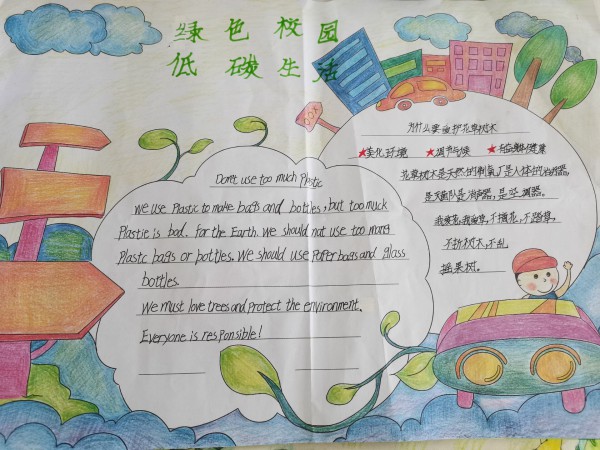 绿色校园
低碳生活
Don't use too much Plastic
We use Plastic to make bags and bottles, but too muck
Plastie is bad. for the Earth. We should not use too many
Plastc bags or bottles. We should use Paper bags and glass
bottles.
We must love trees and Protect the environment.
Everyone is responsible!
为什么要爱护花草树木
★美化环境 ★调节气候 ★有益 健康
花草树木是天然的制氧厂是人体的消
是 消毒器,是空调器。
我爱花,我爱草,不摘花,不踏草,
不折树木,不乱
摇果树。